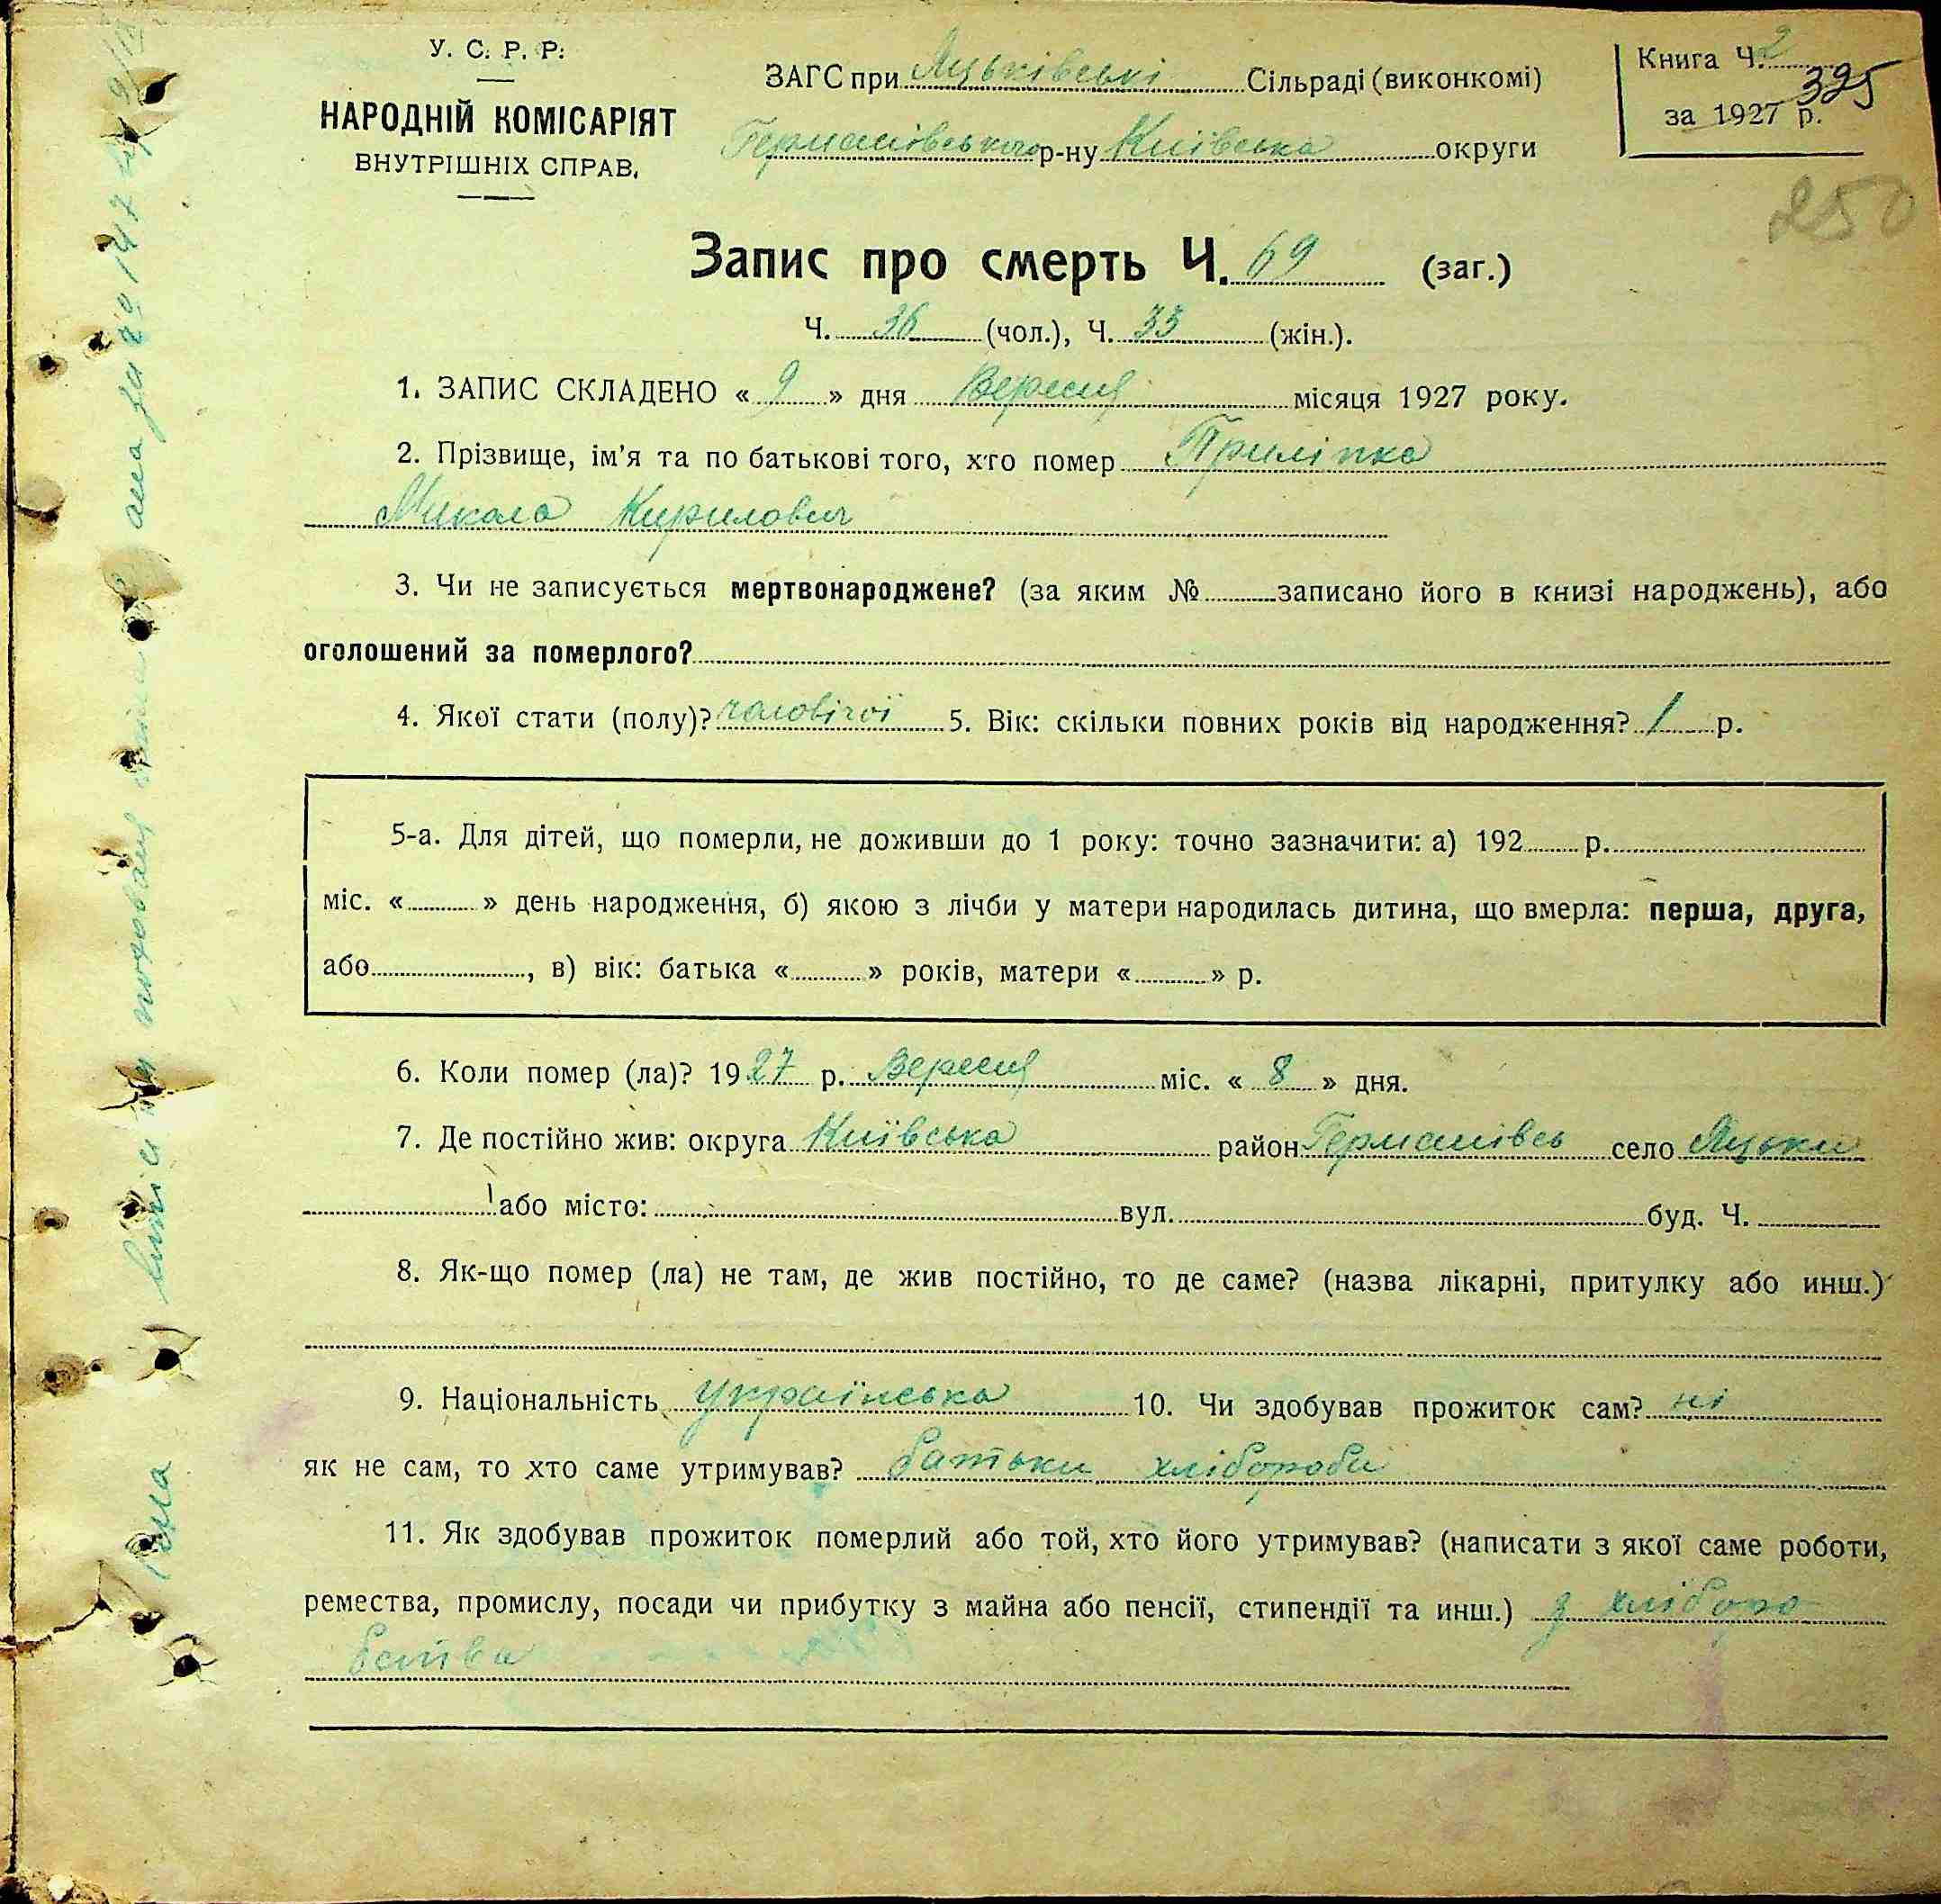 У. С. Р. Р.
НАРОДНІЙ КОМІСАРІЯТ
ВНУТРІШНІХ СПРАВ.
ЗАГС при Яцьківські Сільраді (виконкомі)
Германівського р-ну Київська округи
Книга Ч. 2
395
за 1927 р.
250
Запис про смерть Ч. 69 (заг.)
Ч. 36 (чол.), Ч. 33 (жін.).
1. ЗАПИС СКЛАДЕНО « 9 » дня Вересня місяця 1927 року.
2. Прізвище, ім'я та по батькові того, хто помер Приліпко
Микола Кирилович
3. Чи не записується мертвонароджене? (за яким № записано його в книзі народжень), або
оголошений за померлого?
4. Якої стати (полу)? чоловічої 5. Вік: скільки повних років від народження? 1 р.
5-а. Для дітей, що померли, не доживши до 1 року: точно зазначити: а) 192 р.
міс. « » день народження, б) якою з лічби у матери народилась дитина, що вмерла: перша, друга,
або , в) вік: батька « » років, матери « » р.
6. Коли помер (ла)? 1927 р. Вересня міс. « 8 » дня.
7. Де постійно жив: округа Київська район Германівсь село Яцьки
або місто: вул. буд. Ч.
8. Як-що помер (ла) не там, де жив постійно, то де саме? (назва лікарні, притулку або инш.)
9. Національність українська 10. Чи здобував прожиток сам? ні
як не сам, то хто саме утримував? батьки хлібороби
11. Як здобував прожиток померлий або той, хто його утримував? (написати з якої саме роботи,
ремества, промислу, посади чи прибутку з майна або пенсії, стипендії та инш.) з хліборо
бства